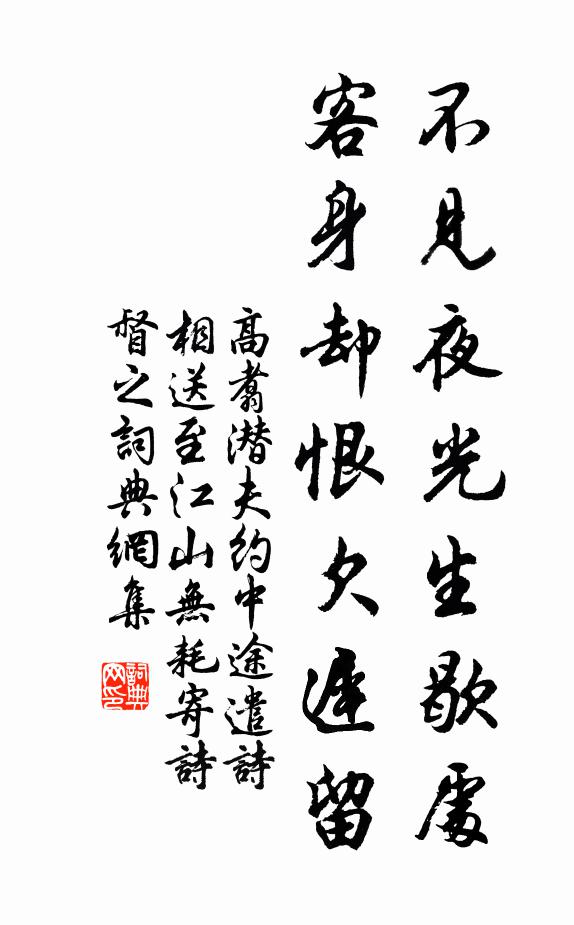 不見夜光生歇處
客身却恨欠遲留
高翥潛夫約中途遣詩
相送至江山無耗寄詩
督之詞典網集
詞典網印